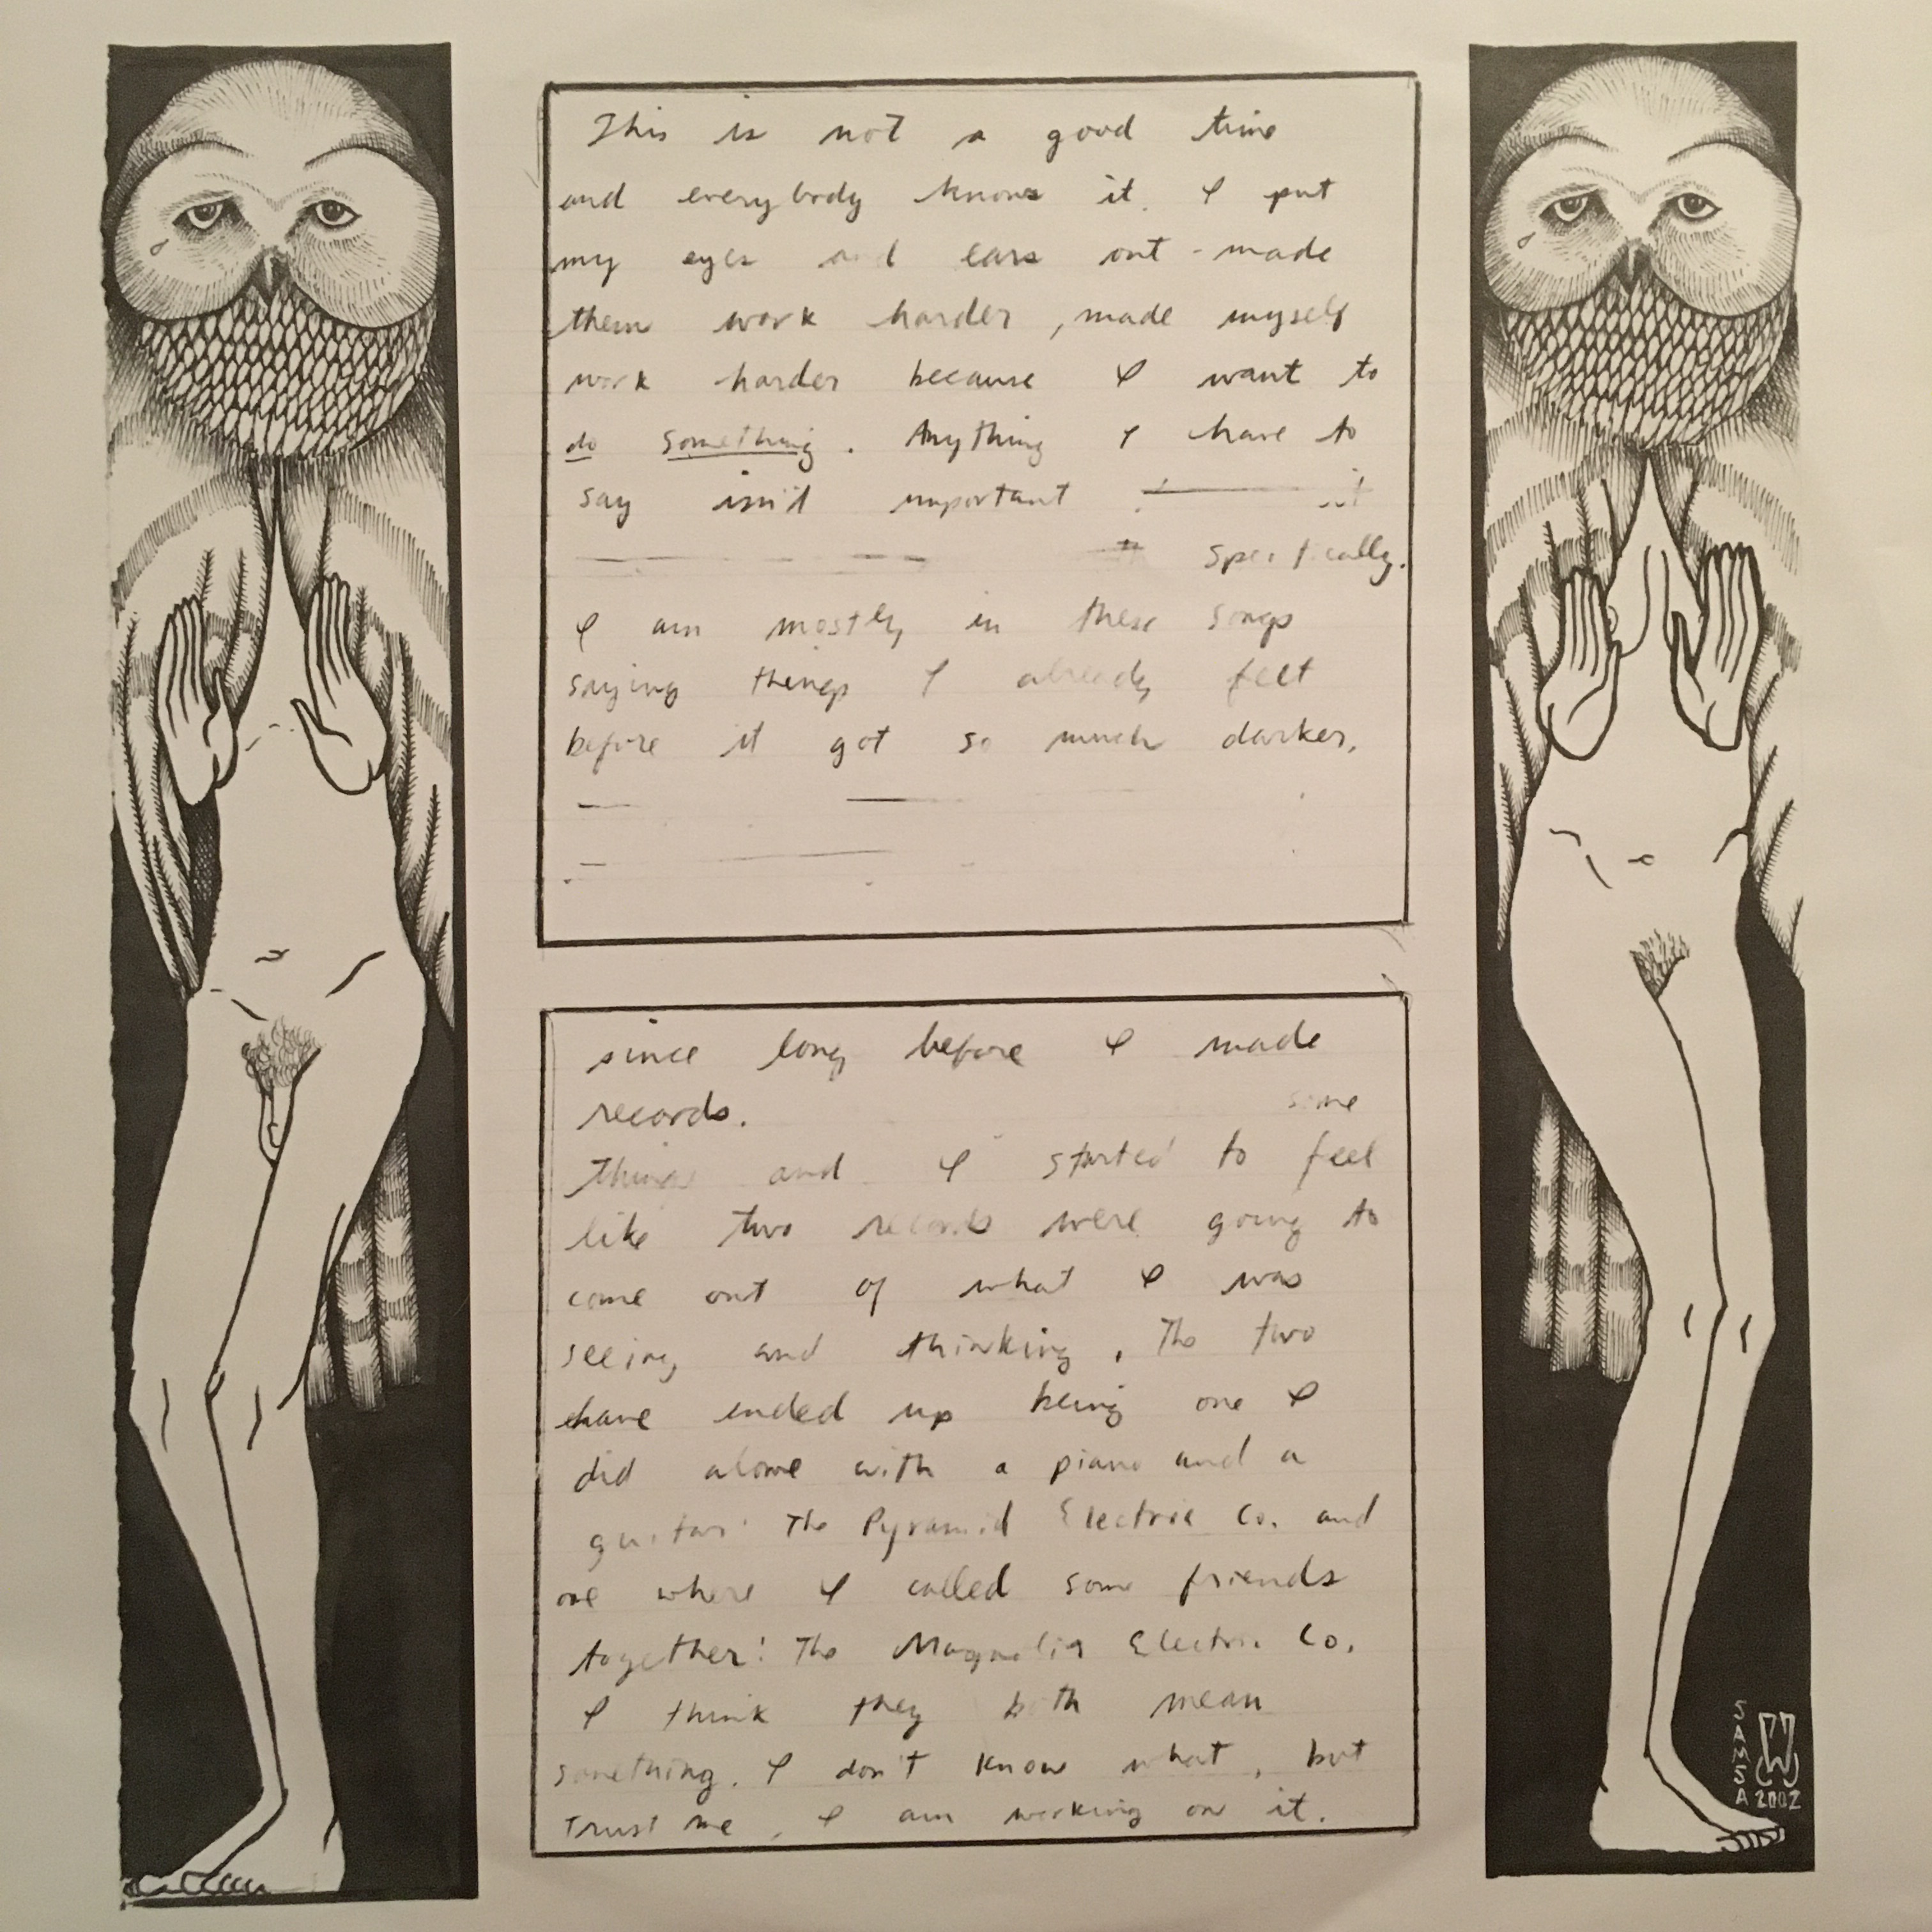 This is not a good time
and everybody knows it. I put
my eyes and ears out - made
them work harder, made myself
work harder because I want to
do something. Anything I have to
say isn't important
it
specifically.
I am mostly in these songs
saying things I already felt
before it got so much darker.
since long before I made
records.
some
things and I started to feel
like two records were going to
come out of what I was
seeing and thinking. The two
have ended up being one I
did alone with a piano and a
guitar: The Pyramid Electric Co. and
one where I called some friends
together: The Magnolia Electric Co.
I think they both mean
something. I don't know what, but
trust me, I am working on it.
SAMSA
W
2002